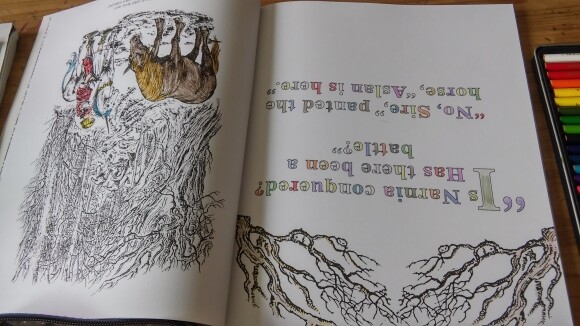 “Is Narnia conquered?
Has there been a
battle?”
“No, Sire,” panted the
horse, “Aslan is here.”